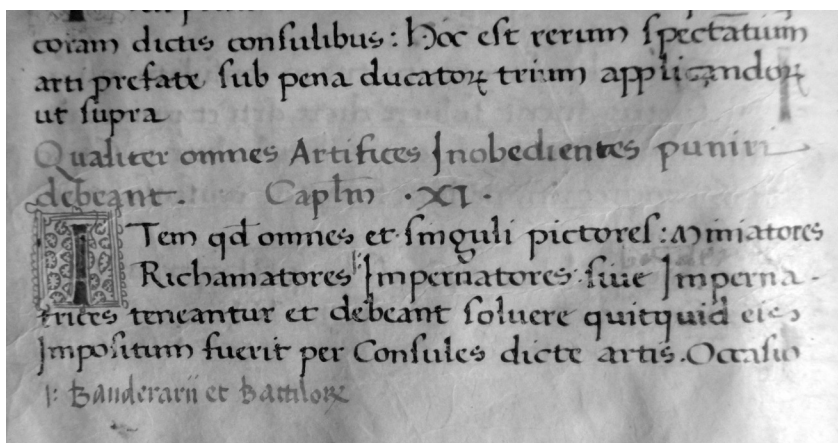 coram dictis consulibus: Hoc est rerum spectatium
arti prefate sub pena ducatoꝝ trium applicandoꝝ
ut supra
Qualiter omnes Artifices Inobedientes puniri
debeant. Caplm̄ ·XI·
ITem qd̄ omnes et singuli pictores: Miniatores
Richamatores Impernatores siue Imperna-
trices teneantur et debeant soluere quitquid eis
Impositum fuerit per Consules dicte artis. Occasio
Banderarii et Battiloꝝ